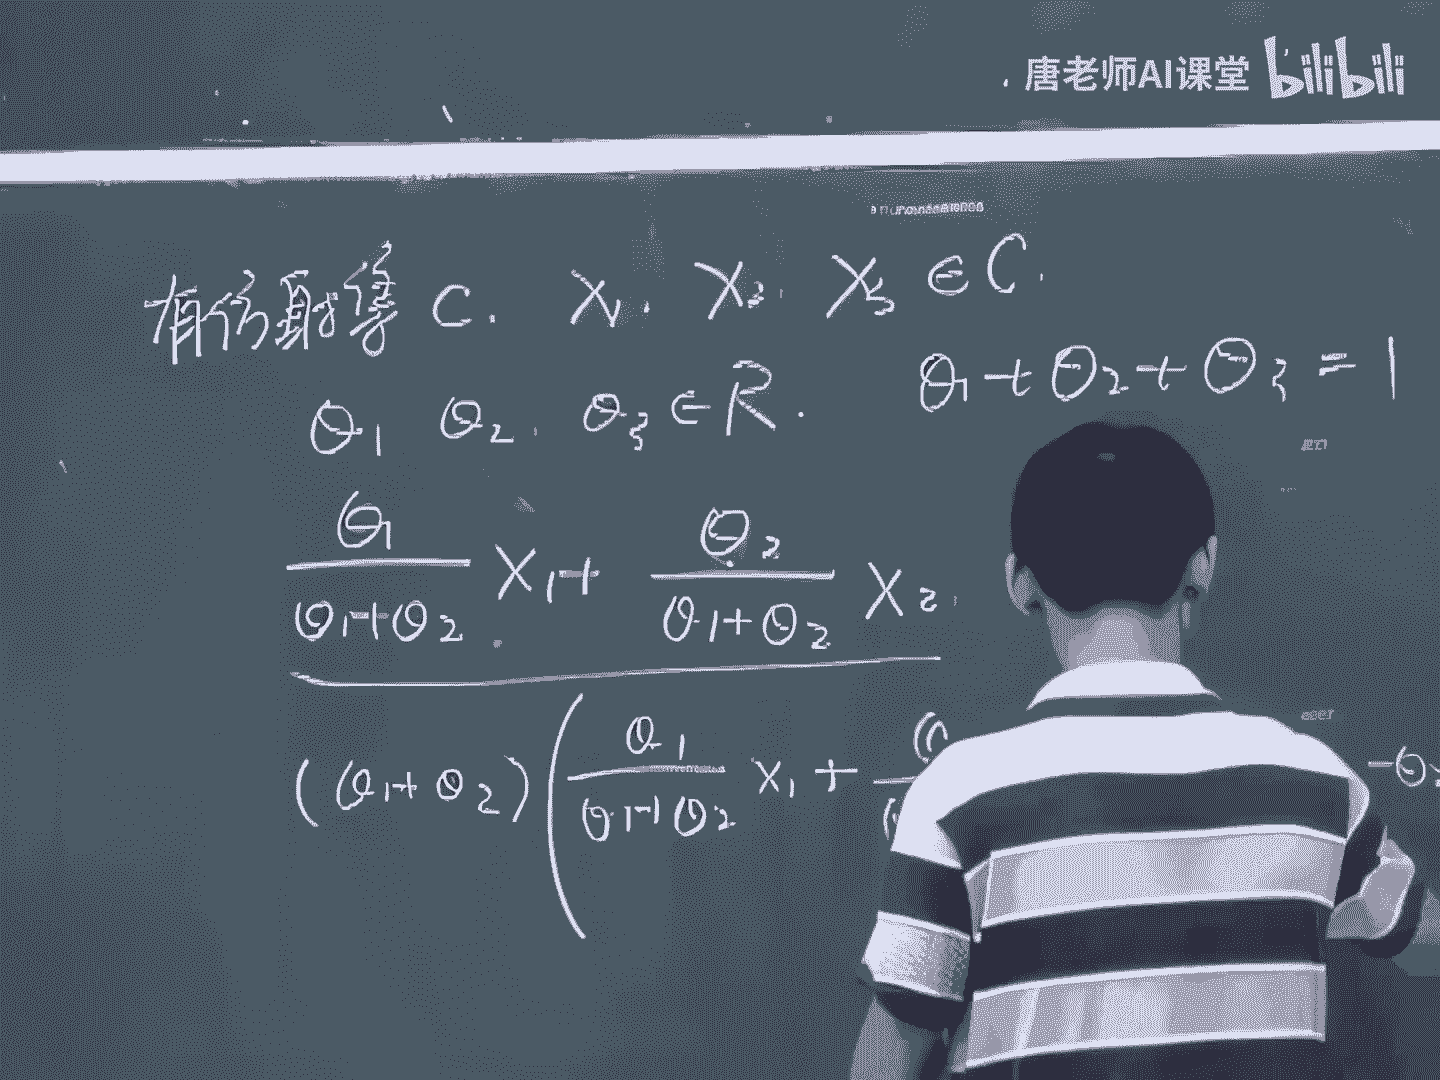 唐老师AI课堂 bilibili
有仿射集 C. X₁. X₂. X₃ ∈ C.
θ₁ θ₂. θ₃ ∈ R. θ₁ + θ₂ + θ₃ = 1
θ₁/(θ₁+θ₂) X₁ + θ₂/(θ₁+θ₂) X₂
(θ₁+θ₂) ( θ₁/(θ₁+θ₂) X₁ +